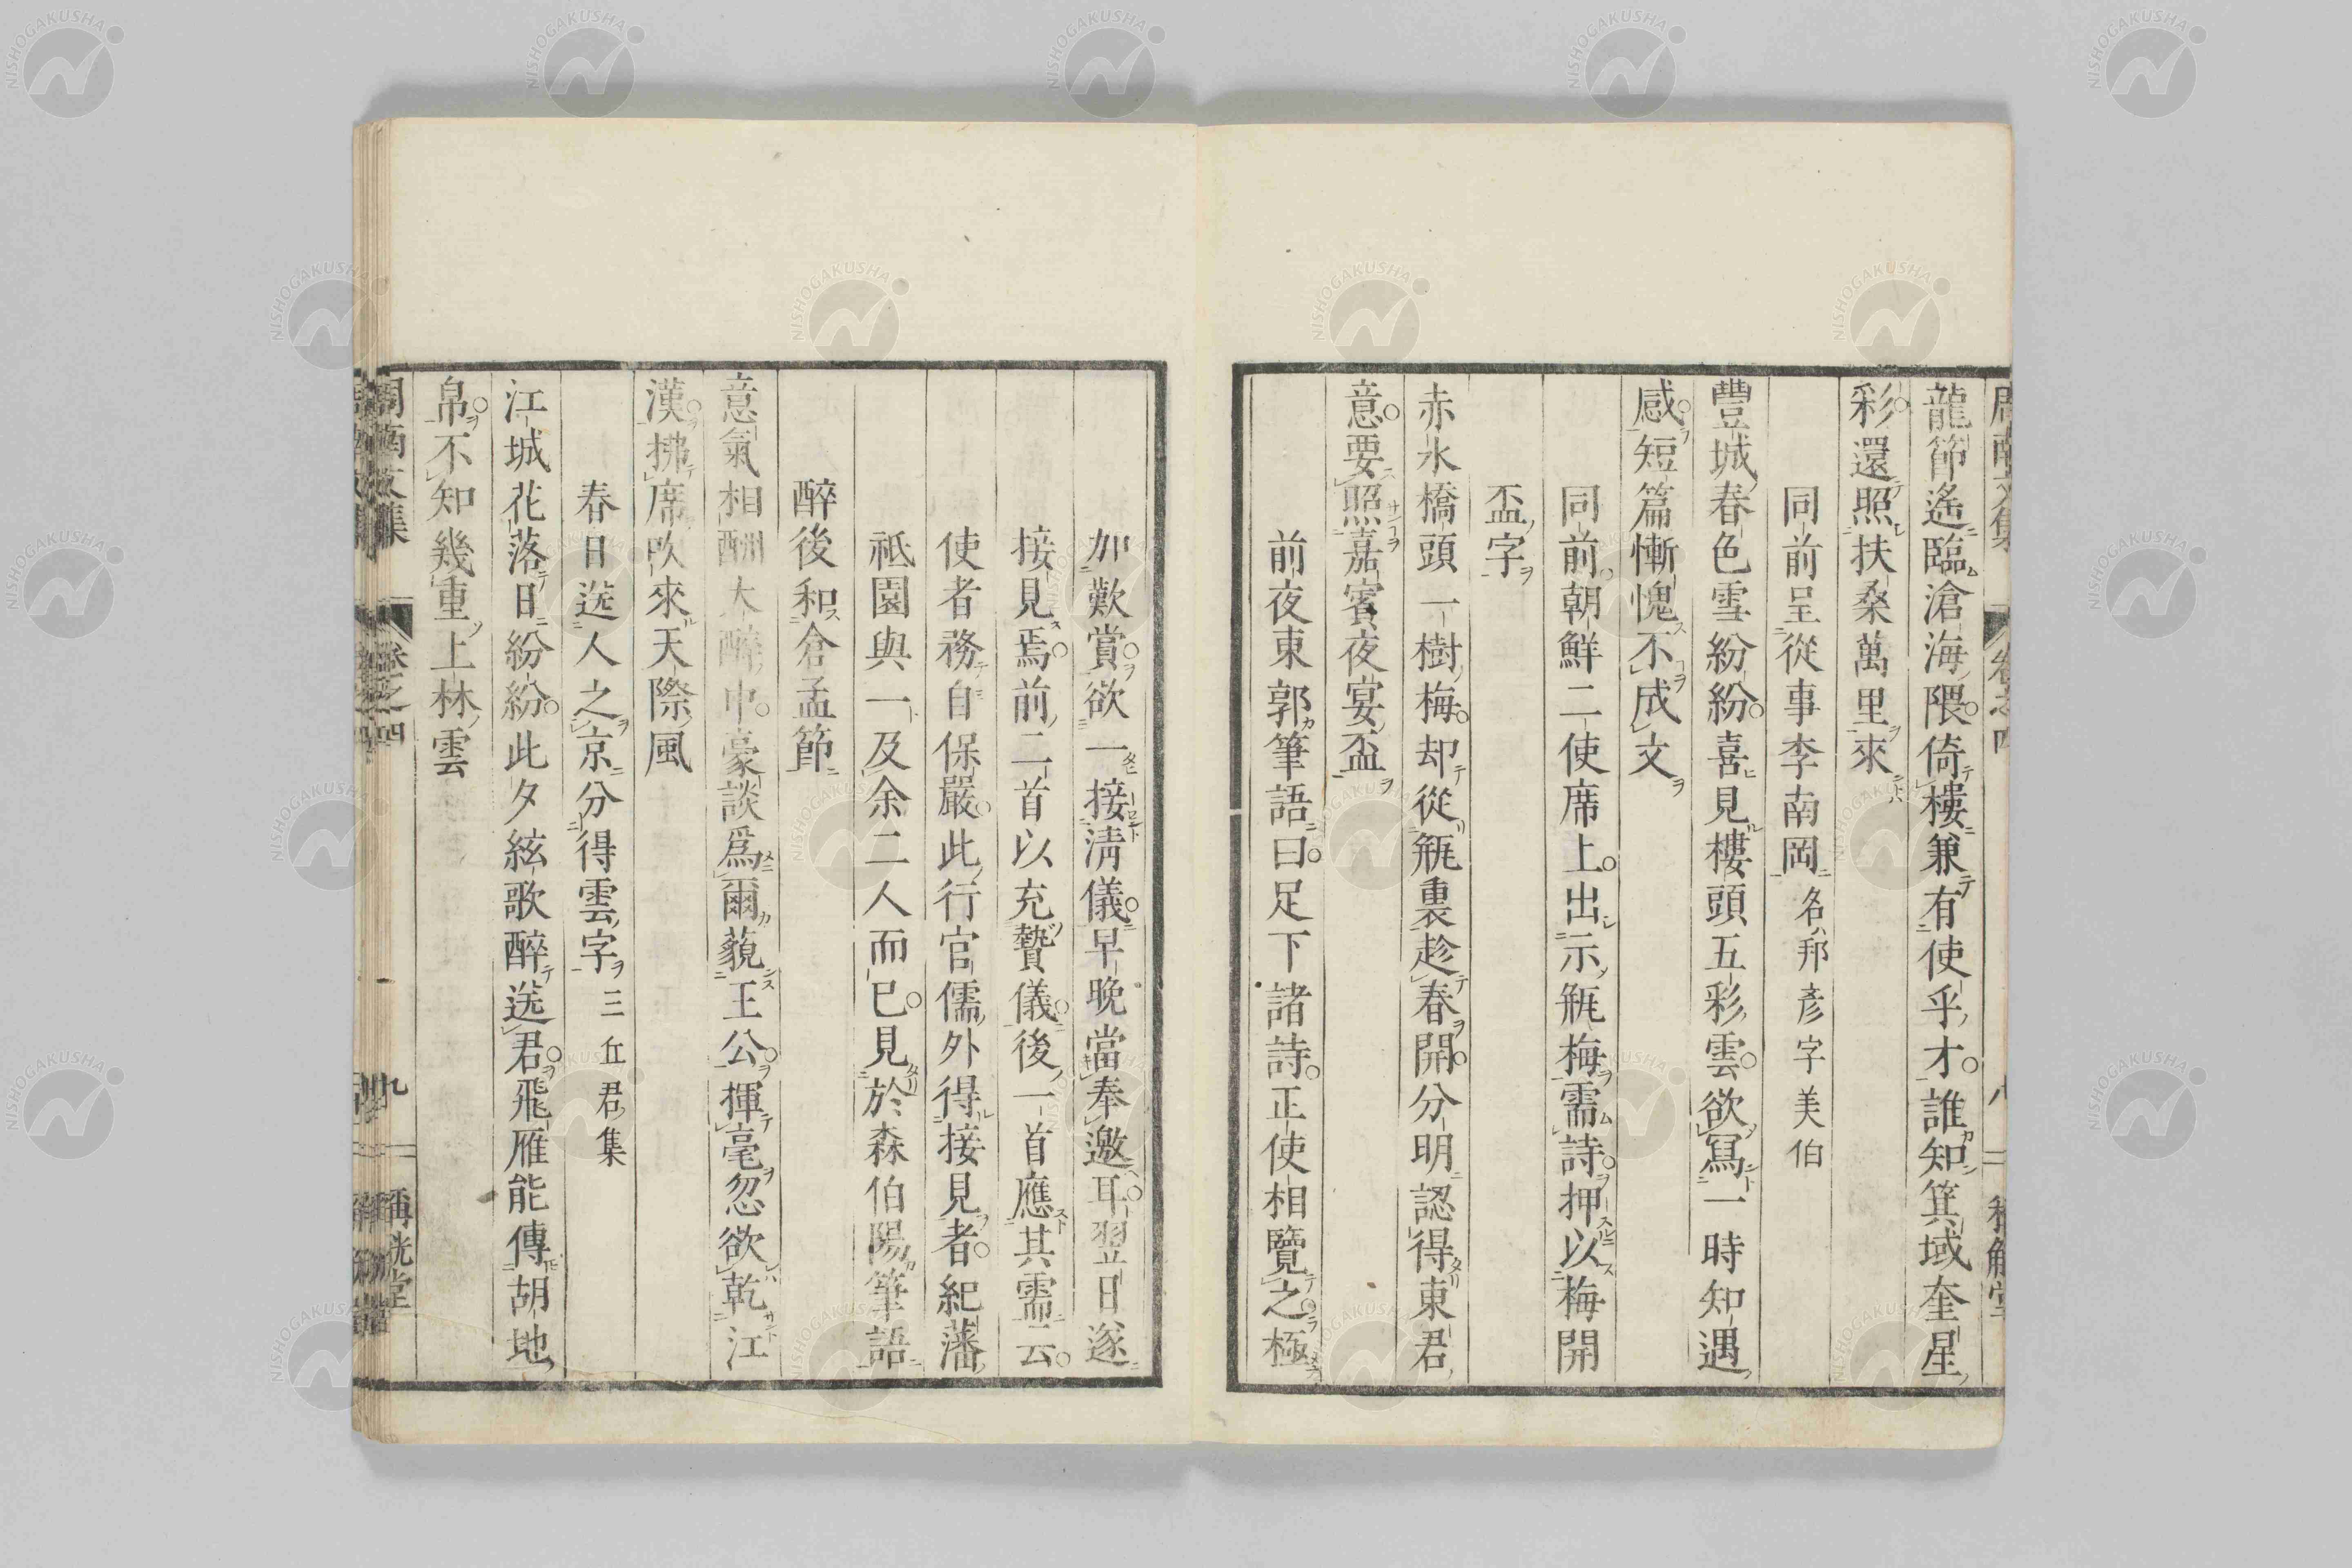 周南文集 卷之四 八 稱觥堂
龍節遙臨滄海隈倚樓兼有使乎才誰知箕域奎星
彩還照扶桑萬里來
同前呈從事李南岡名邦彥字美伯
豐城春色雪紛紛喜見樓頭五彩雲欲寫一時知遇
感短篇慚愧不成文
同前朝鮮二使席上出示瓶梅需詩押以梅開
盃字
赤水橋頭一樹梅却從瓶裏趁春開分明認得東君
意要照嘉賓夜宴盃
前夜東郭筆語曰足下諸詩正使相覽之極
加歎賞欲一接淸儀早晚當奉邀耳翌日遂
接見焉前二首以充贄儀後一首應其需云
使者務自保嚴此行官儒外得接見者紀藩
祗園與一及余二人而已見於森伯陽筆語
醉後和倉孟節
意氣相酬大醉中豪談爲爾藐王公揮毫忽欲乾江
漢拂席吹來天際風
春日送人之京分得雲字三丘君集
江城花落日紛紛此夕絃歌醉送君飛雁能傳胡地
帛不知幾重上林雲
周南文集 卷之四 九 稱觥堂
NISHOGAKUSHA